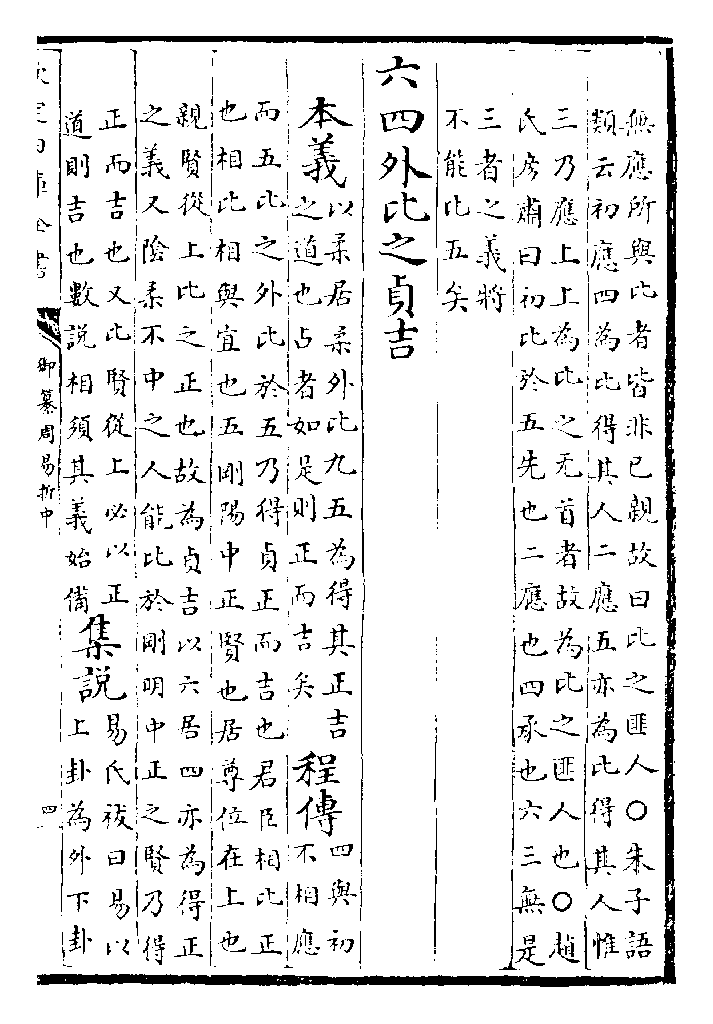 無應所與比者皆非已親故曰比之匪人○朱子語
類云初應四為比得其人二應五亦為比得其人惟
三乃應上上為比之无首者故為比之匪人也○趙
氏彦肅曰初比於五先也二應也四承也六三無是
三者之義將
不能比五矣
六四外比之貞吉
本義以柔居柔外比九五為得其正吉
之道也占者如是則正而吉矣
程傳四與初
不相應
而五比之外比於五乃得貞正而吉也君臣相比正
也相比相與宜也五剛陽中正賢也居尊位在上也
親賢從上比之正也故為貞吉以六居四亦為得正
之義又陰柔不中之人能比於剛明中正之賢乃得
正而吉也又比賢從上必以正
道則吉也數説相須其義始備
集説易氏祓曰易以
上卦為外下卦
欽定四庫全書
御纂周易折中
四